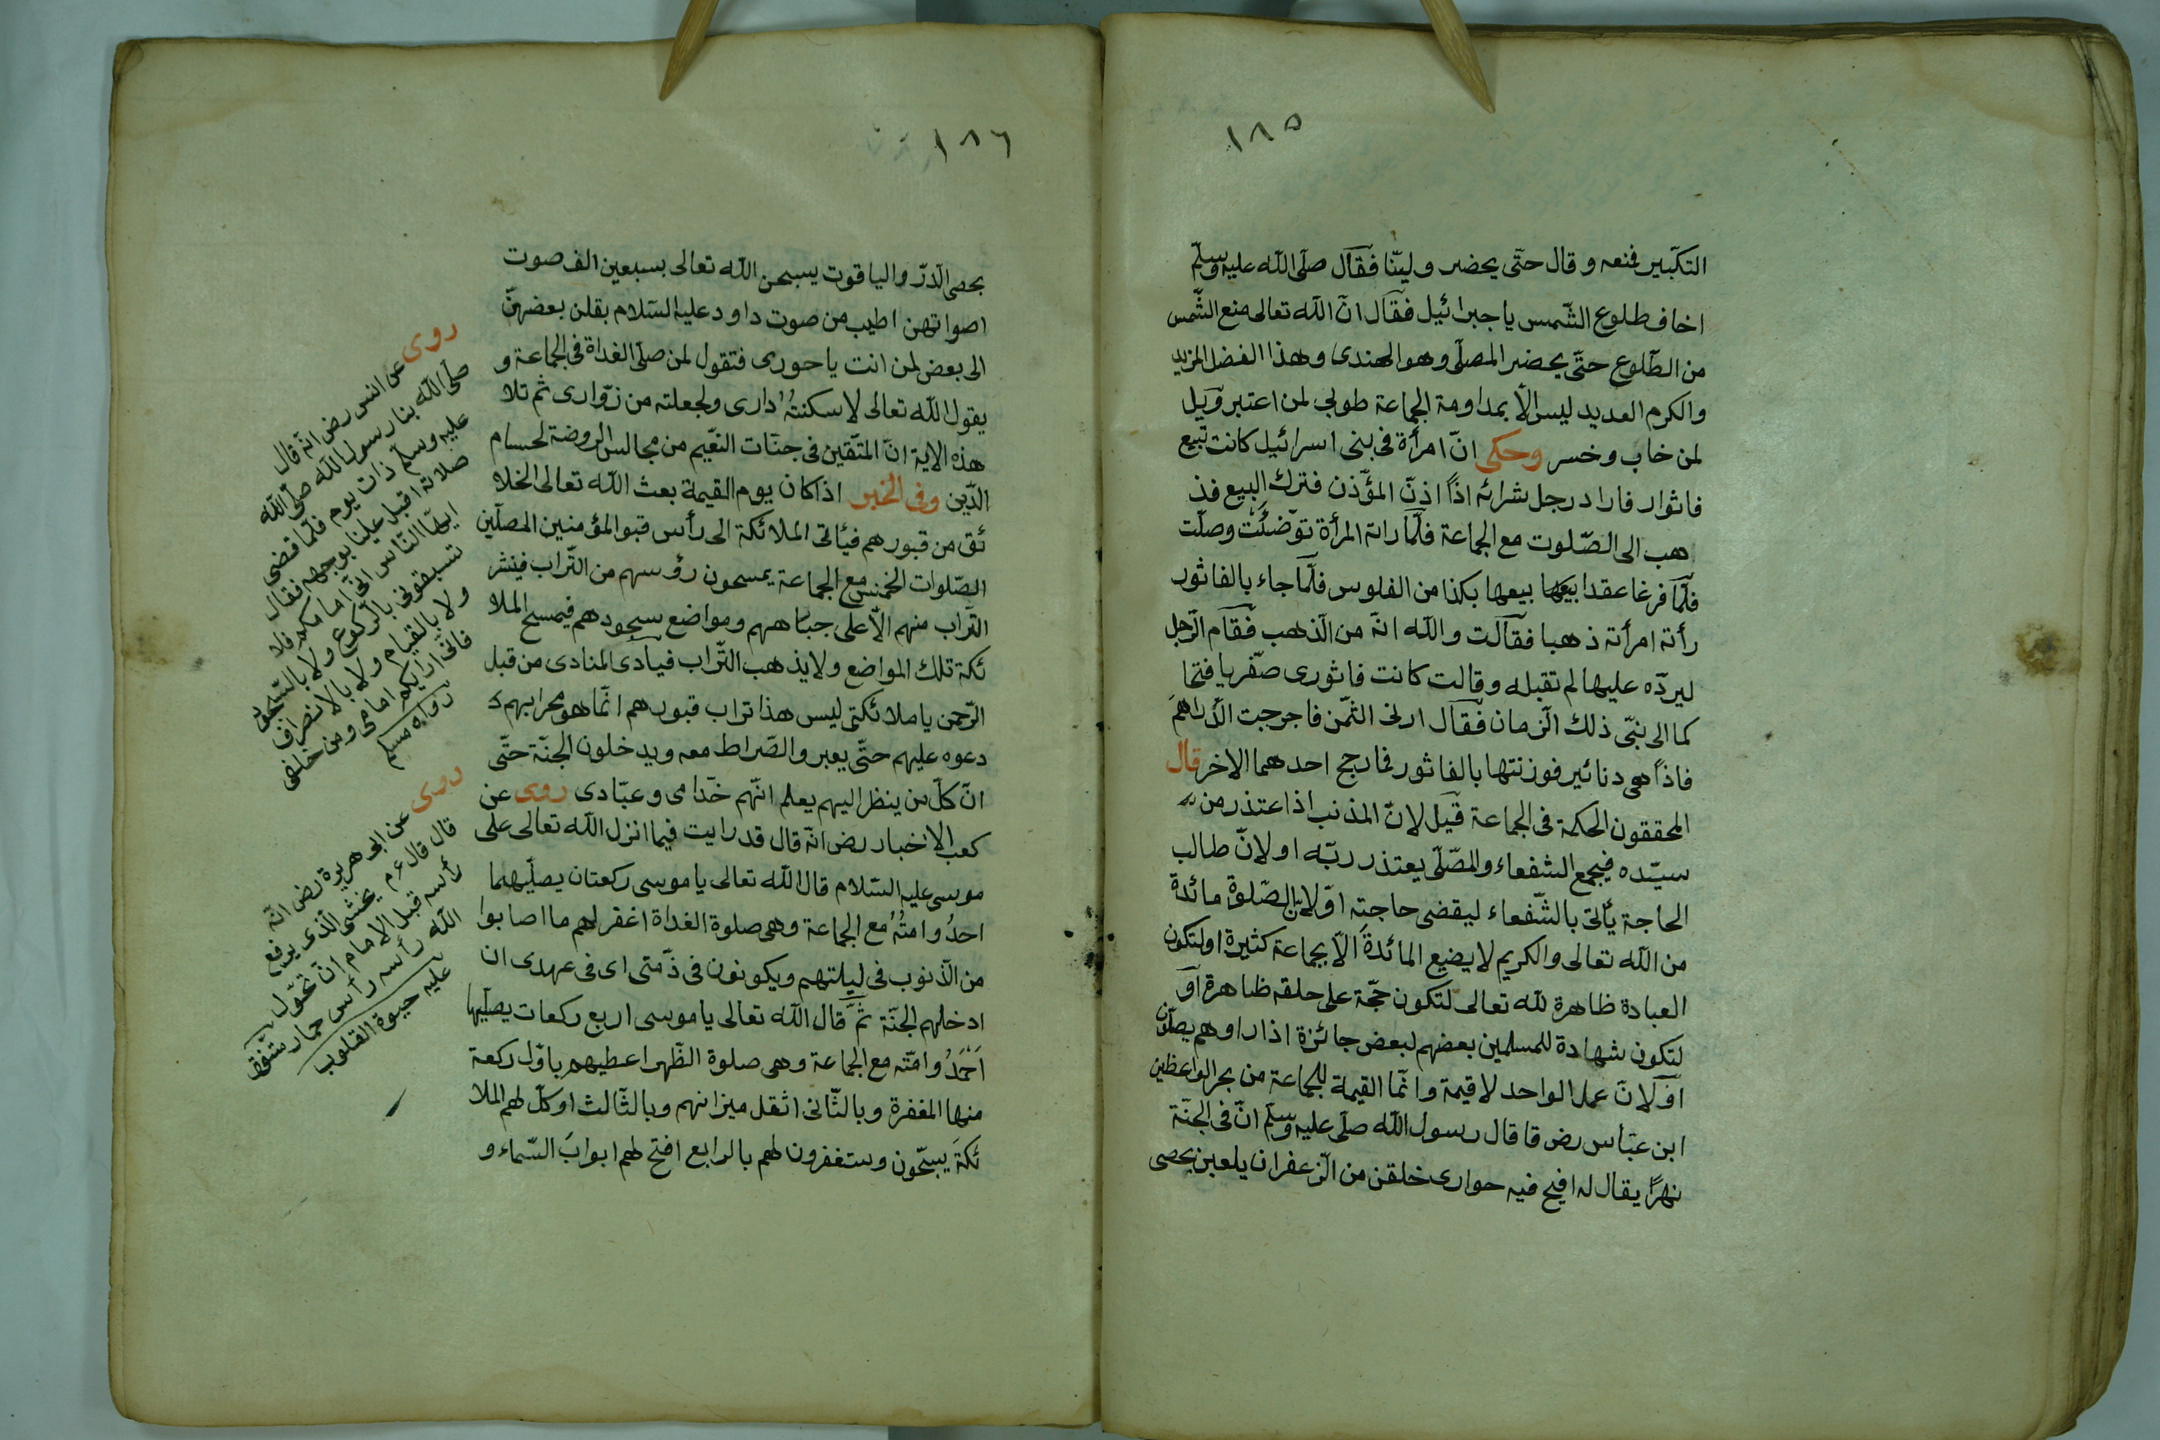 ١٨٥
التكبير فمنعه وقال حتّى يحضر وليّنا فقال صلّى الله عليه وسلّم
اخاف طلوع الشّمس يا جبرائيل فقال انّ الله تعالى منع الشّمس
من الطّلوع حتّى يحضر المصلّى وهو الهندى وهذا الفضل المزيد
والكرم العديد ليس الّا بمداومة الجماعة طوبى لمن اعتبر وويل
لمن خاب وخسر وحكى انّ امرأة فى بنى اسرائيل كانت تبيع
فاثوار فاراد رجل شرائه اذًا اذنّ المؤذّن فترك البيع فذ
هب الى الصّلوت مع الجماعة فلمّا راته المرأة توضّئت وصلّت
فلمّا فرغا عقدا بيعها بيعها بكذا من الفلوس فلمّا جاء بالفاثور
رأته امرأته ذهبا فقالت والله انّه من الذّهب فقام الرّجل
ليردّه عليها لم تقبله وقالت كانت فاثورى صفّر يا فتحا
كما الى نبّى ذلك الزمان فقال ارنى الثّمن فاجرجت الدّراهمَ
فاذًا هى دنائير فوزنتها بالفاثور فمارجح احدهما الاخر قال
المحققون الحكمة فى الجماعة قيل لانّ المذنب اذا اعتذر من
سيّده فيجمع الشفعاء والمصّلّى يعتذر ربّه او لانّ طالب
الحاجة يأتى بالشّفعاء ليقضى حاجته او لانّ الصّلوة مائدة
من الله تعالى والكريم لا يضيع المائدةَ الّا بجماعة كثيرة او لتكون
العبادة ظاهرة لله تعالى لتكون حجّة على خلقه ظاهرة او
لتكون شهادة للمسلمين بعضهم لبعض جائزة اذا راوهم يصلّون
او لانّ عمل الواحد لا قيمة وانّما القيمة للجماعة من بحر الواعظين
ابن عبّاس رض قا قال رسول الله صلّى عليه وسلّم انّ فى الجنّة
نهرًا يقال له افيح فيه حوارى خلقن من الزّعفران يلعبن بحصى
١٨٦
بحصى الدّرّ والياقوت يسبحن الله تعالى بسبعين الف صوت
اصواتهن اطيب من صوت داود عليه السّلام يقلن بعضهنّ
الى بعض لمن انت يا حورى فتقول لمن صلّى الغداة فى الجماعة و
يقول الله تعالى لاسكنتُه دارى ولجعلته من زوّارى ثم تلا
هذه الاية انّ المتّقين فى جنّات النعّيم من مجالس الروضة لحسام
الدّين وفى الخبر اذا كان يوم القيمة بعث الله تعالى الخلا
ئق من قبورهم فيأتى الملائكة الى رأس قبو المؤمنين المصلّين
الصّلوات الخمس مع الجماعة يمسحون رؤسهم من التّراب فينثر
التّراب منهم الّا على جباههم ومواضع سجودهم فيمسح الملا
ئكة تلك المواضع ولا يذهب التّراب فيادى المنادى من قبل
الرّحمن يا ملائكتى ليس هذا تراب قبورهم انّما هو محرابهم د
دعوه عليهم حتّى يعبروا الصّراط معه ويدخلون الجنّة حتّى
انّ كلّ من ينظر اليهم يعلم انّهم خدّامى وعبّادى روى عن
كعب الاخبار رض انّه قال قد رايت فيما انزل الله تعالى على
موسى عليه السّلام قال الله تعالى يا موسى ركعتان يصلّيهما
احدُ وامتُه مع الجماعة وهى صلوة الغداة اغفر لهم ما اصابوا
من الذّنوب فى ليلتهم ويكونون فى ذمّتى اى فى عهدى ان
ادخلهم الجنّة ثمّ قال الله تعالى يا موسى اربع ركعات يصلّيها
اَحْمَدُ وامّته مع الجماعة وهى صلوة الظّهر اعطيهم باوّل ركعة
منها المغفرة وبالثّانى اثقل ميزانهم وبالثّالث اوكلّ لهم الملا
ئكةَ يسبّحون وستغفرون لهم بالرابع افتح لهم ابوابَ السّماء و
روى عن انس رض انّه قال
صلّى الله بنا رسول الله صلّى الله
عليه وسلّم ذات يوم فلمّا قضى
صلاته اقبل علينا بوجهه فقال
ايها النّاس انّى امامكم فلا
تسبقونى بالركوع ولا بالسّجود
ولا بالقيام ولا بالانصراف
فانّى اراكم امامى ومن خلفى
رواه مسلم
روى عن ابى هريرة رض انّه
قال قال عم يخشى الّذى يرفع
رأسه قبل الامام ان تحوّل
الله رأسه رأس حمار متّفق
عليه حيوة القلوب